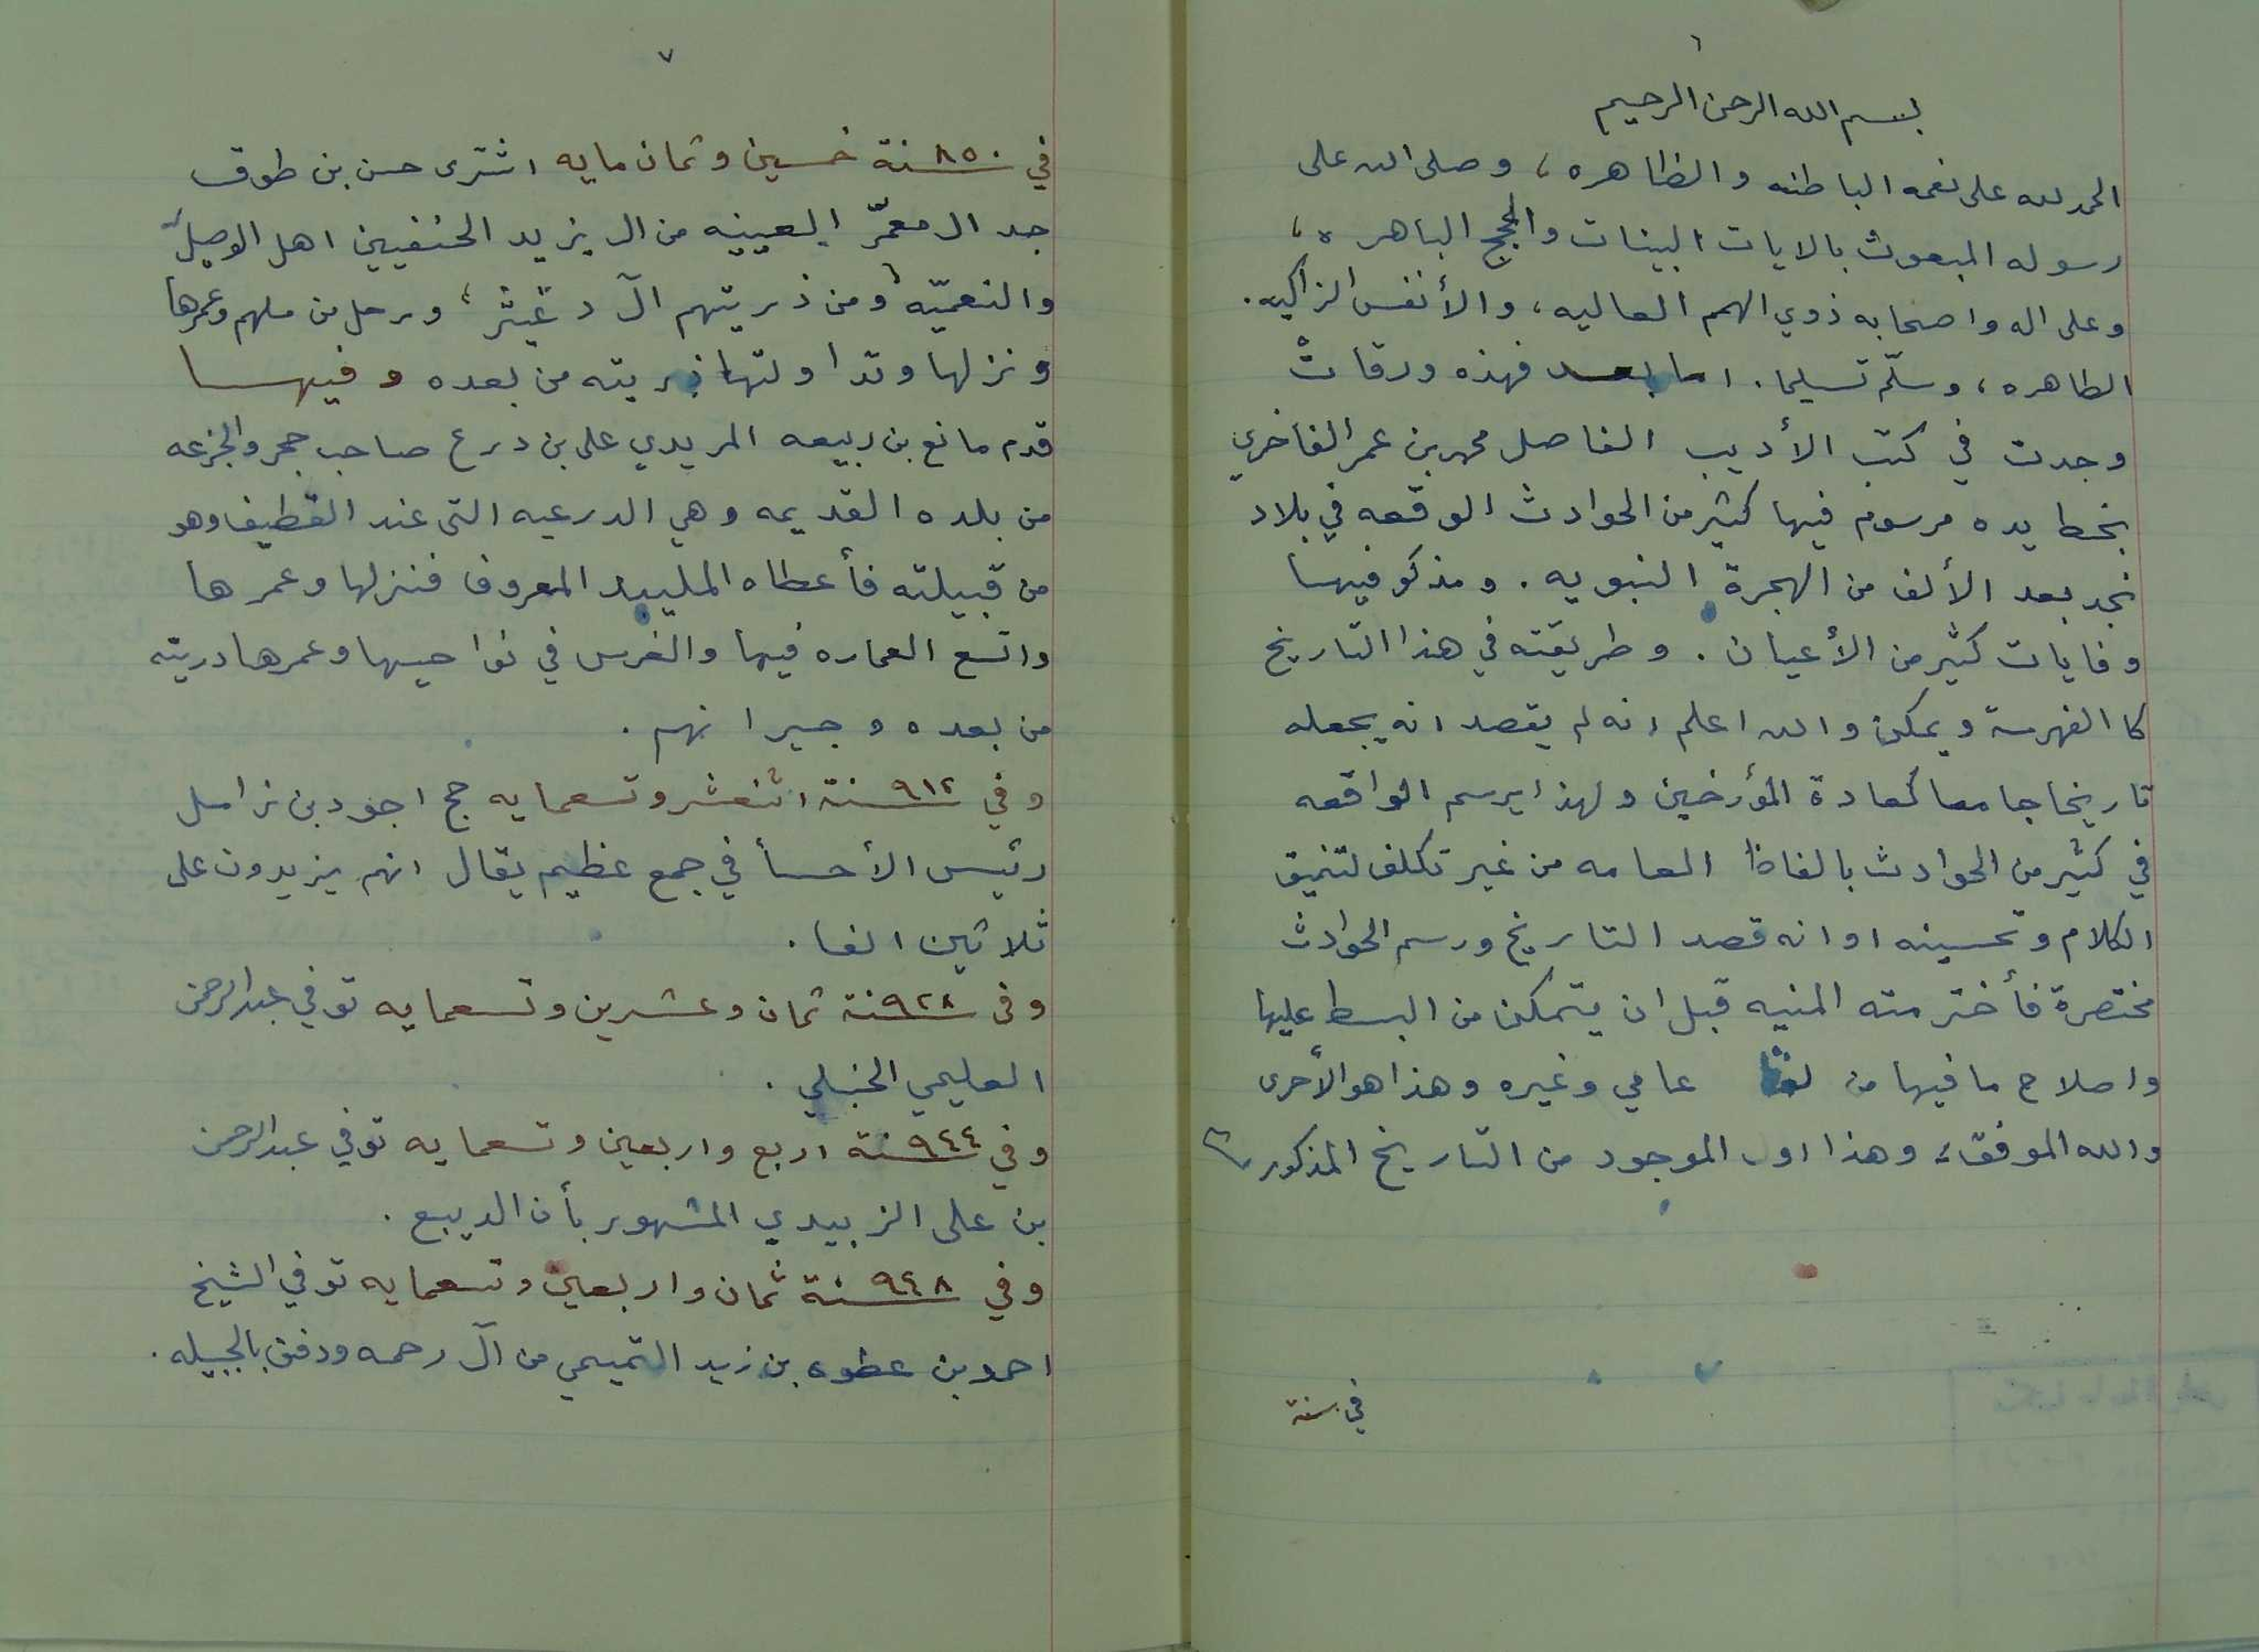 ٦
بسم الله الرحمن الرحيم
الحمد لله على نعمه الباطنه والظاهره، وصلى الله على
رسوله المبعوث بالايات البينات والحجج الباهره،
وعلى اله واصحابه ذوي الهمم العاليه، والأنفس الزاكيه.
الطاهره، وسلّم تسليما. اما بعد فهذه ورقاتْ
وجدت في كتب الأديب الفاضل محمد بن عمر الفاخري
بخط يده مرسوم فيها كثير من الحوادث الوقعه في بلاد
نجد بعد الألف من الهجرة النبويه. ومذكو فيها
وفايات كثير من الأعيان. وطريقته في هذا التاريخ
كا الفهرسة ويمكن والله اعلم انه لم يقصد انه يجعله
تاريخا جامعا كعادة المؤرخين ولهذا يرسم الواقعه
في كثير من الحوادث بالفاظ العامه من غير تكلف لتنميق
الكلام وتحسينه او انه قصد التاريخ ورسم الحوادث
مختصرة فأخترمته المنيه قبل ان يتمكن من البسط عليها
واصلاح ما فيها من عامي وغيره وهذا هو الأحرى
والله الموفق، وهذا اول الموجود من التاريخ المذكور
في سنة
٧
في ٨٥٠ سنة خمسين وثمان مايه اشترى حسن بن طوق
جد ال معمّر العيينه من ال يزيد الحنفيين اهل الوصيل
والنعميّه ومن ذريتهم آل دغيثر، ورحل من ملهم وعمرها
ونزلها وتداولتها ذريته من بعده وفيها
قدم مانع بن ربيعه المريدي على بن درع صاحب حجر والجزعه
من بلده القديمه وهي الدرعيه التى عند القطيف وهو
من قبيلته فأعطاه المليبيد المعروف فنزلها وعمرها
واتسع العماره فيها والغرس في نواحيها وعمرها دريته
من بعده وجيرانهم.
وفي ٩١٢ سنة اثنعشر وتسعمايه حج اجود بن زامل
رئيس الأحسأ في جمع عظيم يقال انهم يزيدون على
ثلاثين الفا.
وفى ٩٢٨ سنة ثمان وعشرين وتسعمايه توفي عبدالرحمن
العليمي الحنبلي.
وفي ٩٤٤ سنة اربع واربعين وتسعمايه توفي عبدالرحمن
بن على الزبيدي المشهور بأن الديبع.
وفي ٩٤٨ سنة ثمان واربعين وتسعمايه توفي الشيخ
احمد بن عطوه بن زيد التميمي من آل رحمه ودفن بالجبيله.